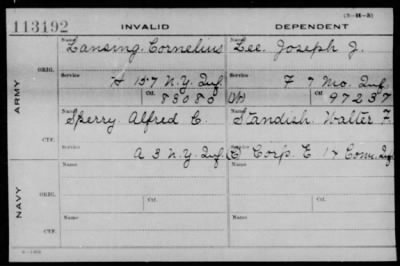 (3-14-3)
113192 INVALID DEPENDENT
Name Name
Lansing, Cornelius Lee, Joseph J.
ORIG.
Service Service
H 157 N.Y. Inf F 7 Mo. Inf
Ctf. Ctf.
83080 97237
ARMY
Name Name
Sperry Alfred C. Standish Walter F
CTF.
Service
A 3 N.Y. Inf. C Corp. E 1 Conn. Inf
Name Name
ORIG.
Service Ctf. Service Ctf.
NAVY
Name Name
CTF.